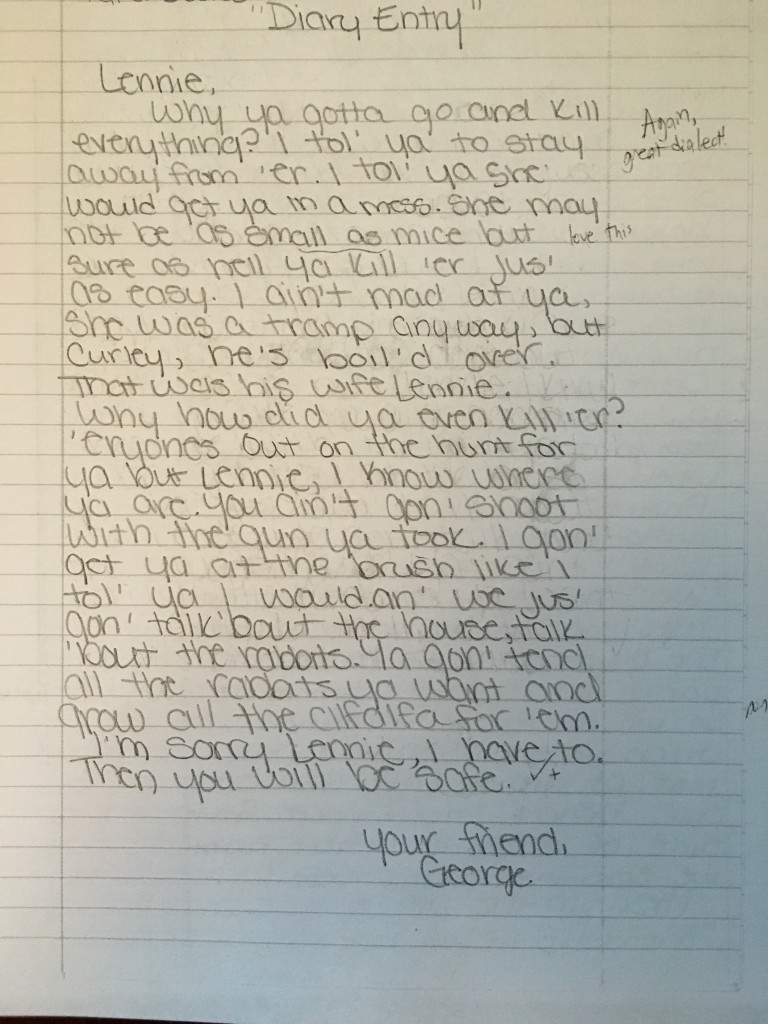 "Diary Entry"
Lennie,
Why ya gotta go and kill
everything? I tol' ya to stay
Again,
great dialect!
away from 'er. I tol' ya she
would get ya in a mess. She may
not be as small as mice but
love this
sure as hell ya kill 'er jus'
as easy. I ain't mad at ya,
she was a tramp anyway, but
Curley, he's boil'd over.
That was his wife Lennie.
Why how did ya even kill 'er?
'eryones out on the hunt for
ya but Lennie, I know where
ya are. You ain't gon' shoot
with the gun ya took. I gon'
get ya at the brush like I
tol' ya I would. an' we jus'
gon' talk 'bout the house, talk
'bout the rabbits. Ya gon' tend
all the rabats ya want and
grow all the alfalfa for 'em.
I'm sorry Lennie, I have to.
Then you will be safe. ✓+
your friend,
George.